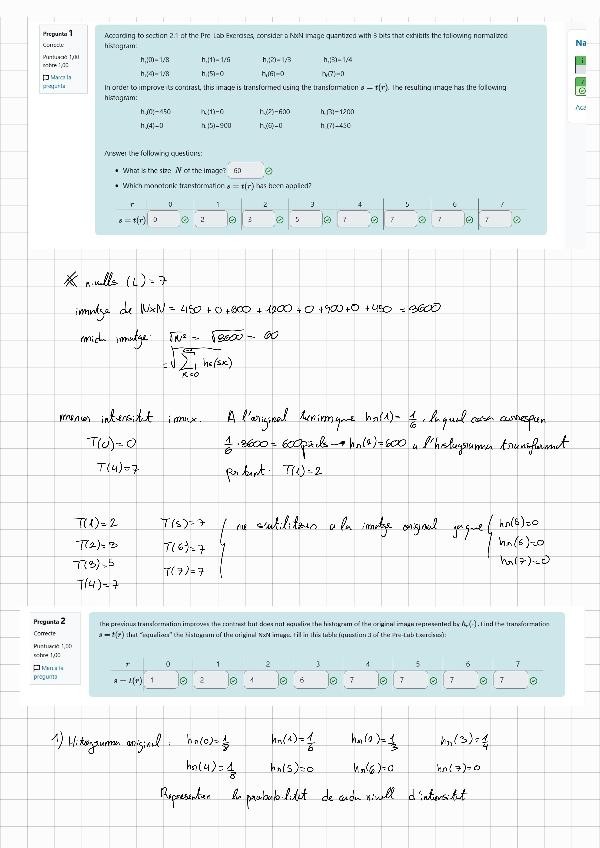 Pregunta 1
Correcte
Puntuació 1,00 sobre 1,00
Marca la pregunta
According to section 2.1 of the Pre-Lab Exercises, consider a NxN image quantized with 3 bits that exhibits the following normalized
histogram:
hᵣ(0)=1/8 hᵣ(1)=1/6 hᵣ(2)=1/3 hᵣ(3)=1/4
hᵣ(4)=1/8 hᵣ(5)=0 hᵣ(6)=0 hᵣ(7)=0
In order to improve its contrast, this image is transformed using the transformation s = t(r). The resulting image has the following
histogram:
hₛ(0)=450 hₛ(1)=0 hₛ(2)=600 hₛ(3)=1200
hₛ(4)=0 hₛ(5)=900 hₛ(6)=0 hₛ(7)=450
Answer the following questions:
• What is the size N of the image? 60
• Which monotonic transformation s = t(r) has been applied?
r 0 1 2 3 4 5 6 7
s = t(r) 0 2 3 5 7 7 7 7
Na
i
Aca
nivells (L) = 7
imatge de NxN = 450 + 0 + 600 + 1200 + 0 + 900 + 0 + 450 = 3600
mida imatge: √N² = √3600 = 60
= √∑ hs(sk)
K=0
menor intensitat i max. A l'original tenim que hn(1) = 1/6, la qual cosa correspon
T(0)=0 1/6 · 3600 = 600 píxels → hn(2)=600 a l'histograma transformat
T(4)=7 per tant: T(1)=2
T(1)=2 T(5)=7 no s'utilitzen a la imatge original ja que hn(5)=0
T(2)=3 T(6)=7 hn(6)=0
T(3)=5 T(7)=7 hn(7)=0
T(4)=7
Pregunta 2
Correcte
Puntuació 1,00 sobre 1,00
Marca la pregunta
The previous transformation improves the contrast but does not equalize the histogram of the original image represented by hᵣ(·). Find the transformation
s = t(r) that "equalizes" the histogram of the original NxN image. Fill in this table (question 3 of the Pre-Lab Exercises):
r 0 1 2 3 4 5 6 7
s = t(r) 1 2 4 6 7 7 7 7
1) Histograma original: hn(0)=1/8 hn(1)=1/6 hn(2)=1/3 hn(3)=1/4
hn(4)=1/8 hn(5)=0 hn(6)=0 hn(7)=0
Representen la probabilitat de cada nivell d'intensitat